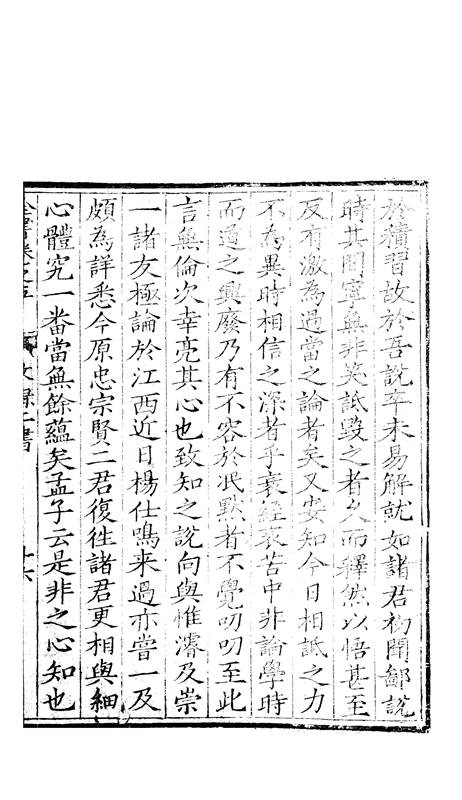 於積習故於吾說卒未易解就如諸君初聞鄙說
時其間寧無非笑詆毀之者久而釋然以悟甚至
反有激為過當之論者矣又安知今日相詆之力
不為異時相信之深者乎衰絰哀苦中非論學時
而道之興廢乃有不容於泯默者不覺叨叨至此
言無倫次幸亮其心也致知之說向與惟濬及崇
一諸友極論於江西近日楊仕鳴来過亦嘗一及
頗為詳悉今原忠宗賢二君復徃諸君更相與細
心體究一番當無餘蘊矣孟子云是非之心知也
全書卷之五 文錄二書 十六